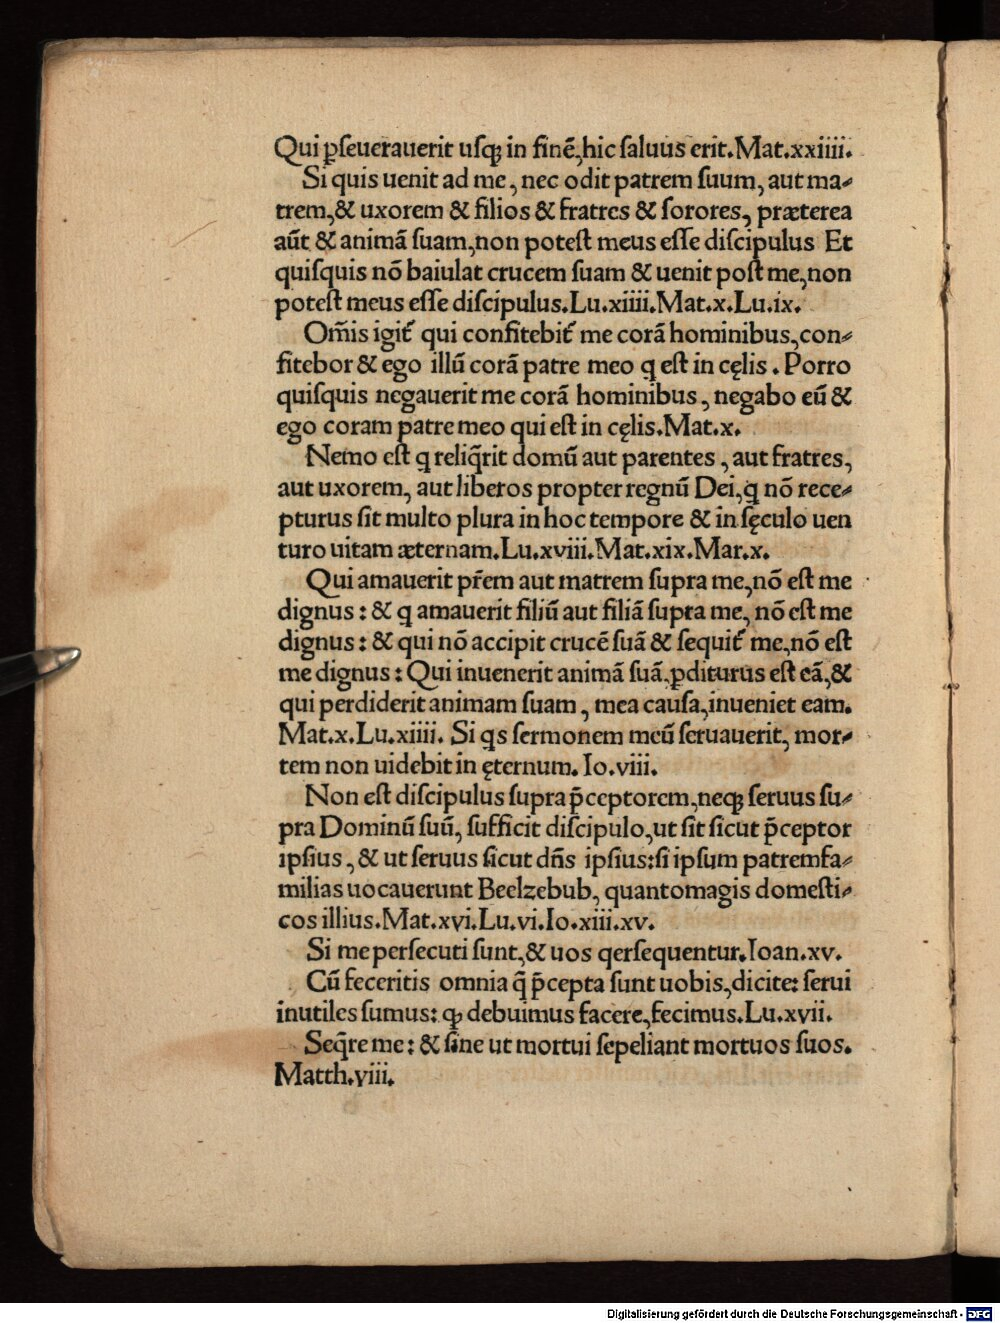 Qui ꝑſeuerauerit uſqꝫ in finē, hic ſaluus erit. Mat. xxiiii.
Si quis uenit ad me, nec odit patrem ſuum, aut ma⸗
trem, & uxorem & filios & fratres & ſorores, præterea
aūt & animā ſuam, non poteſt meus eſſe diſcipulus Et
quiſquis nō baiulat crucem ſuam & uenit poſt me, non
poteſt meus eſſe diſcipulus. Lu. xiiii. Mat. x. Lu. ix.
Om̄is igit̃ qui confitebit̃ me corā hominibus, con⸗
fitebor & ego illū corā patre meo q eſt in cęlis. Porro
quiſquis negauerit me corā hominibus, negabo eū &
ego coram patre meo qui eſt in cęlis. Mat. x.
Nemo eſt q reliq̃rit domū aut parentes, aut fratres,
aut uxorem, aut liberos propter regnū Dei, q nō rece⸗
pturus ſit multo plura in hoc tempore & in ſęculo uen
turo uitam æternam. Lu. xviii. Mat. xix. Mar. x.
Qui amauerit pr̃em aut matrem ſupra me, nō eſt me
dignus: & q amauerit filiū aut filiā ſupra me, nō eſt me
dignus: & qui nō accipit crucē ſuā & ſequit̃ me, nō eſt
me dignus: Qui inuenerit animā ſuā, ꝑditurus eſt eā, &
qui perdiderit animam ſuam, mea cauſa, inueniet eam.
Mat. x. Lu. xiiii. Si qs ſermonem meū ſeruauerit, mor⸗
tem non uidebit in ęternum. Io. viii.
Non eſt diſcipulus ſupra p̄ceptorem, neqꝫ ſeruus ſu⸗
pra Dominū ſuū, ſufficit diſcipulo, ut ſit ſicut p̄ceptor
ipſius, & ut ſeruus ſicut dn̄s ipſius: ſi ipſum patremfa⸗
milias uocauerunt Beelzebub, quantomagis domeſti⸗
cos illius. Mat. xvi. Lu. vi. Io. xiii. xv.
Si me perſecuti ſunt, & uos qerſequentur. Ioan. xv.
Cū feceritis omnia q̄ p̄cepta ſunt uobis, dicite: ſerui
inutiles ſumus: qꝫ debuimus facere, fecimus. Lu. xvii.
Seq̃re me: & ſine ut mortui ſepeliant mortuos ſuos.
Matth. viii.
Digitalisierung gefördert durch die Deutsche Forschungsgemeinschaft - DFG